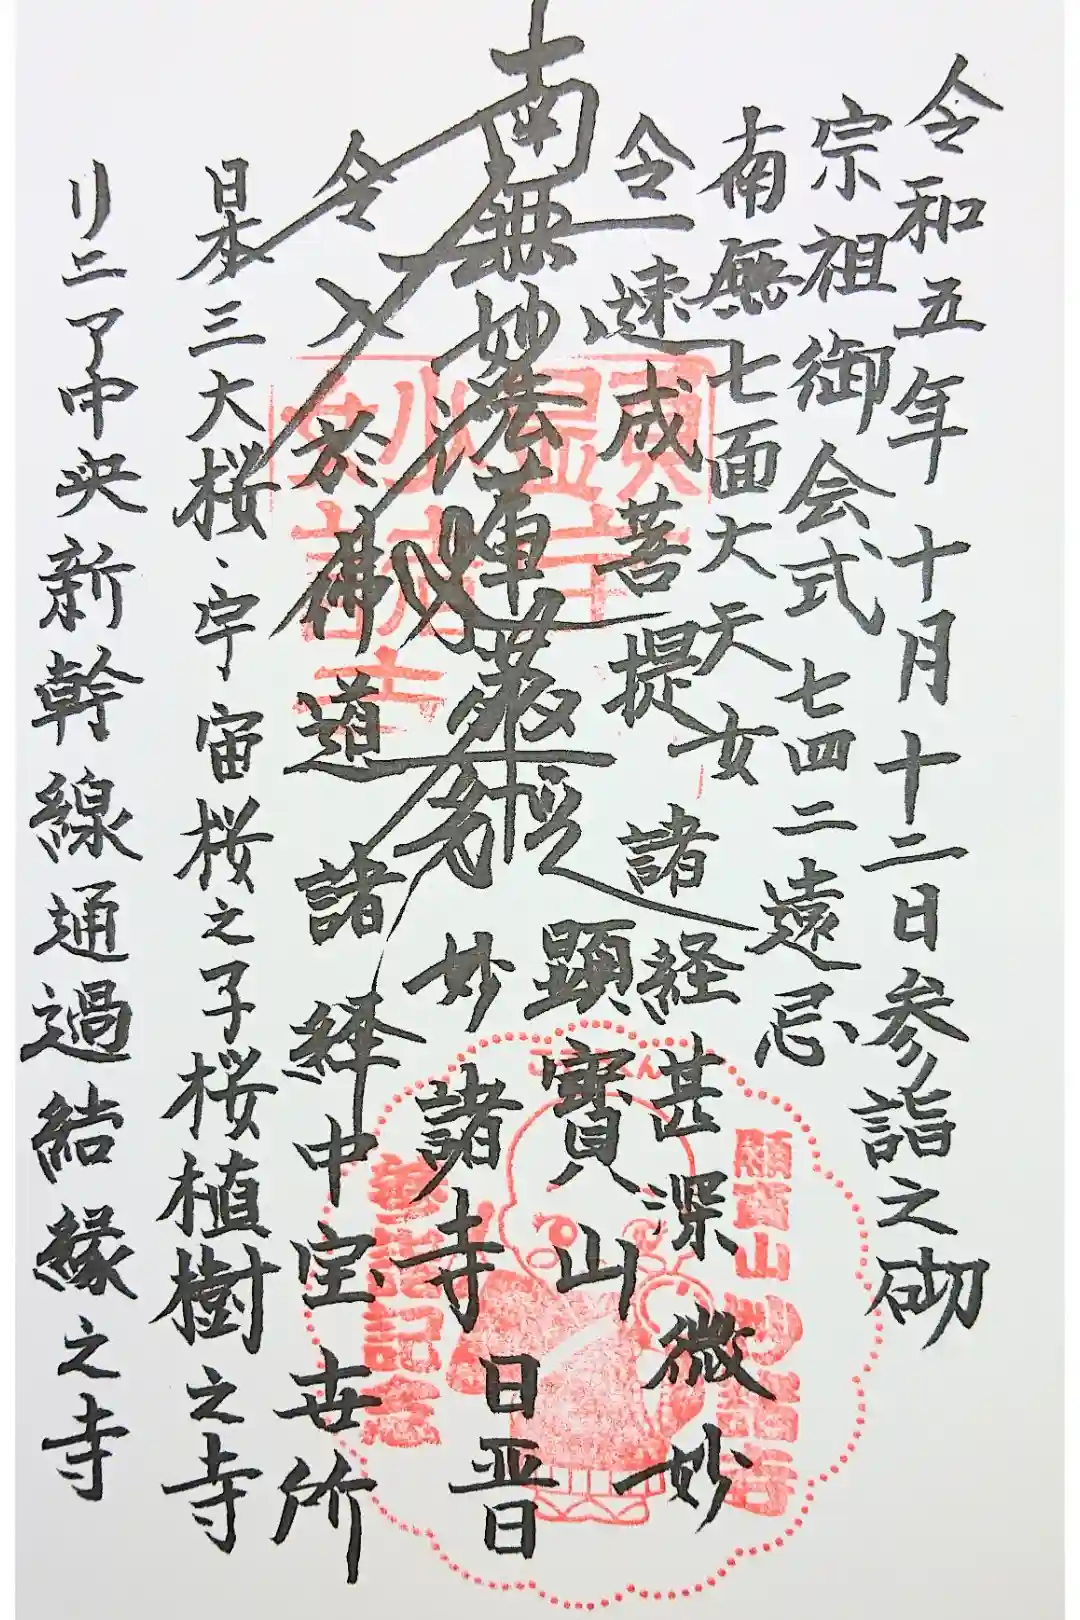 令和五年十月十二日参詣之砌
宗祖御会式七四二遠忌
南無七面大天女
諸経甚深微妙
令一速成菩提
顕寶山
南無妙法蓮華経
妙諸寺
日晋
令入於佛道
諸経中宝世所
日本三大桜、宇宙桜之子桜植樹之寺
リニア中央新幹線通過結縁之寺
願寶山妙諸寺
参詣記念